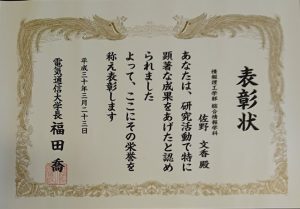 表彰状
情報理工学部 総合情報学科
佐野 文香 殿
あなたは、研究活動で特に
顕著な成果をあげたと認め
られました
よって、ここにその栄誉を
称え表彰します
平成三十年三月二十三日
電気通信大学長 福田 喬